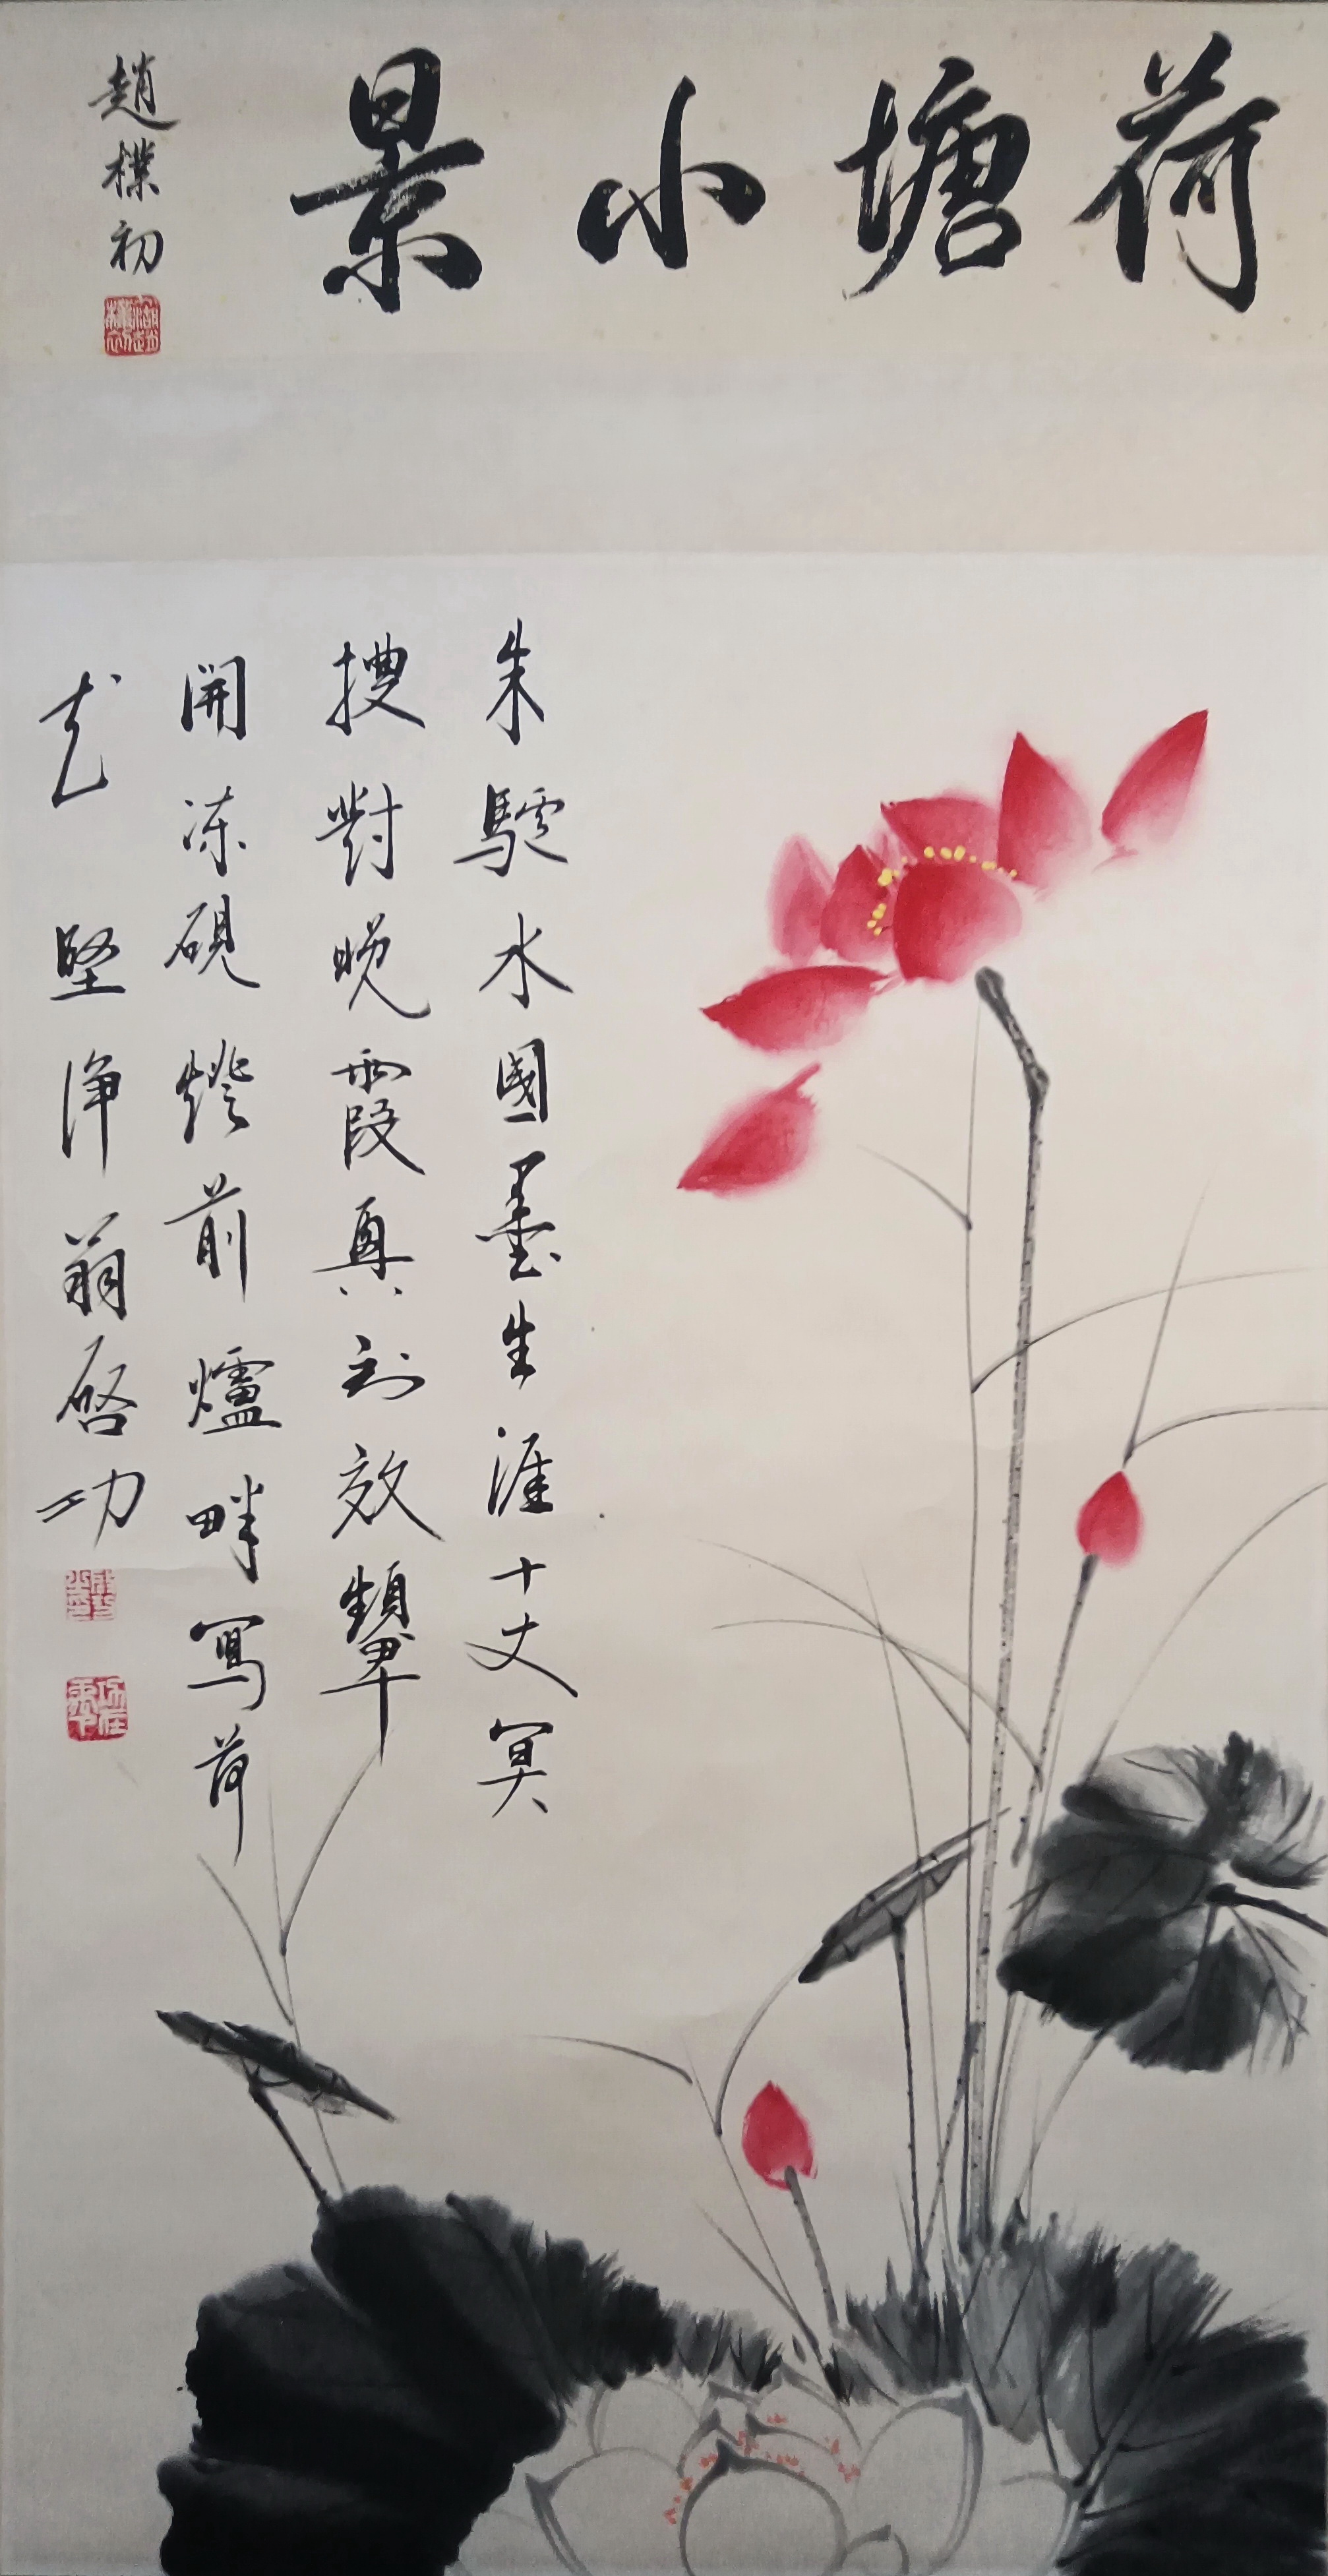 荷塘小景
趙樸初
朱駝水國墨生涯十丈冥
搜對晚霞真到效顰
開凍硯燈前爐畔寫荷
堅淨翁啓功